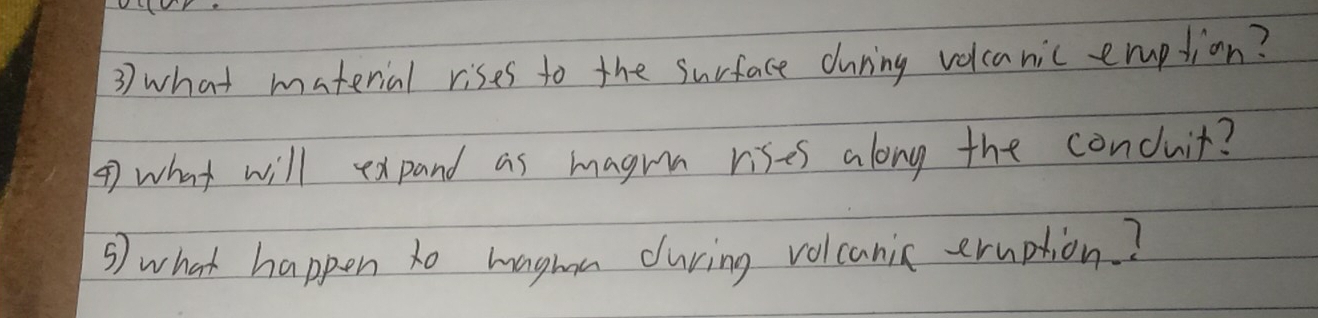 3) what material rises to the surface during volcanic eruption?
4) what will expand as magma rises along the conduit?
5) what happen to magma during volcanic eruption.?